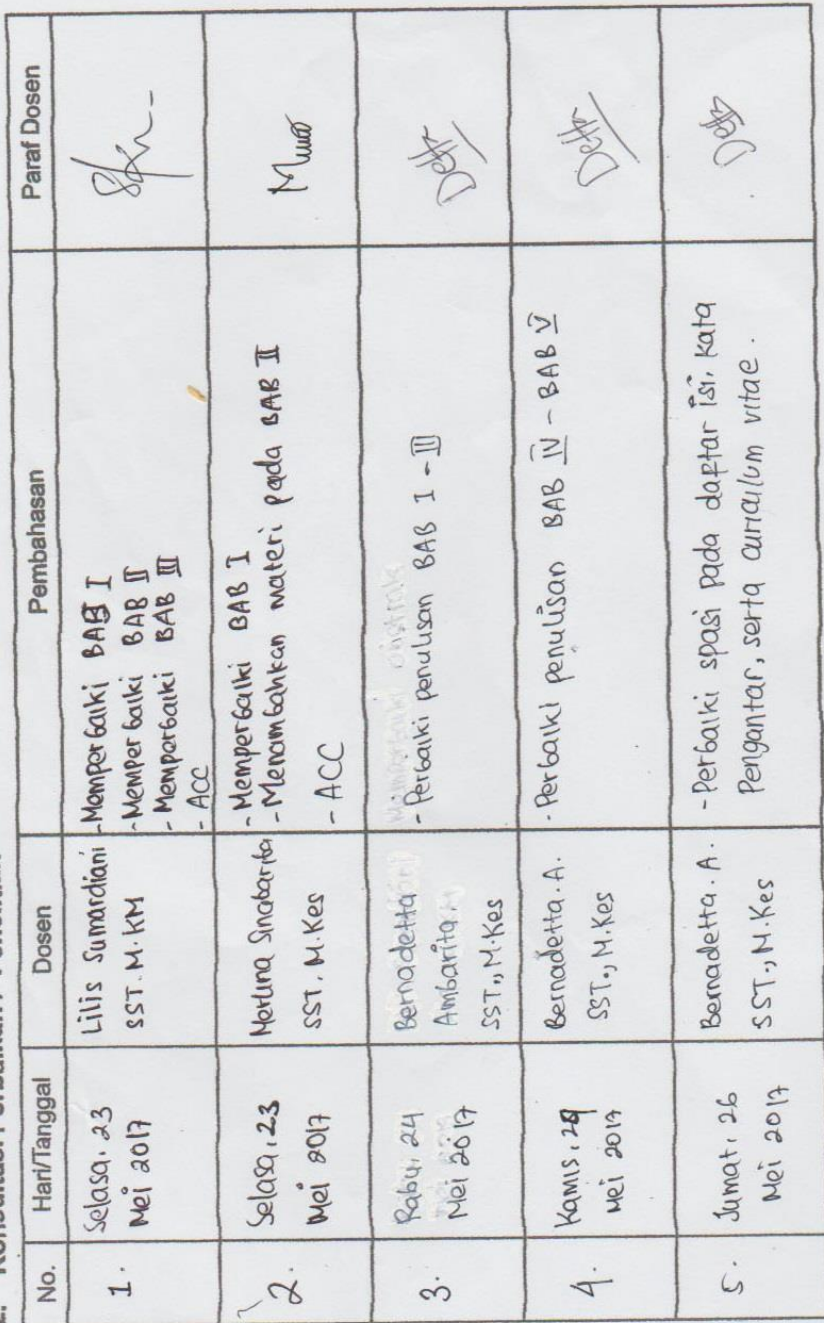 No. Hari/Tanggal Dosen Pembahasan Paraf Dosen
1. Selasa, 23 Mei 2017
Lilis Sumardiani SST. M.KM
-Memperbaiki BAB I
-Memperbaiki BAB II
-Memperbaiki BAB III
-ACC
2. Selasa, 23 Mei 2017
SST. M.Kes
-Memperbaiki BAB I
-Menambahkan materi pada BAB II
-ACC
3. Rabu, 24 Mei 2017
Bernadetta Ambarita SST., M.Kes
-Perbaiki penulisan BAB I - III
4. Kamis, Mei 2017
Bernadetta. A. SST., M.Kes
-Perbaiki penulisan BAB IV - BAB V
5. Jumat, 26 Mei 2017
Bernadetta. A. SST., M.Kes
-Perbaiki spasi pada daftar isi, kata
Pengantar, serta curriculum vitae.